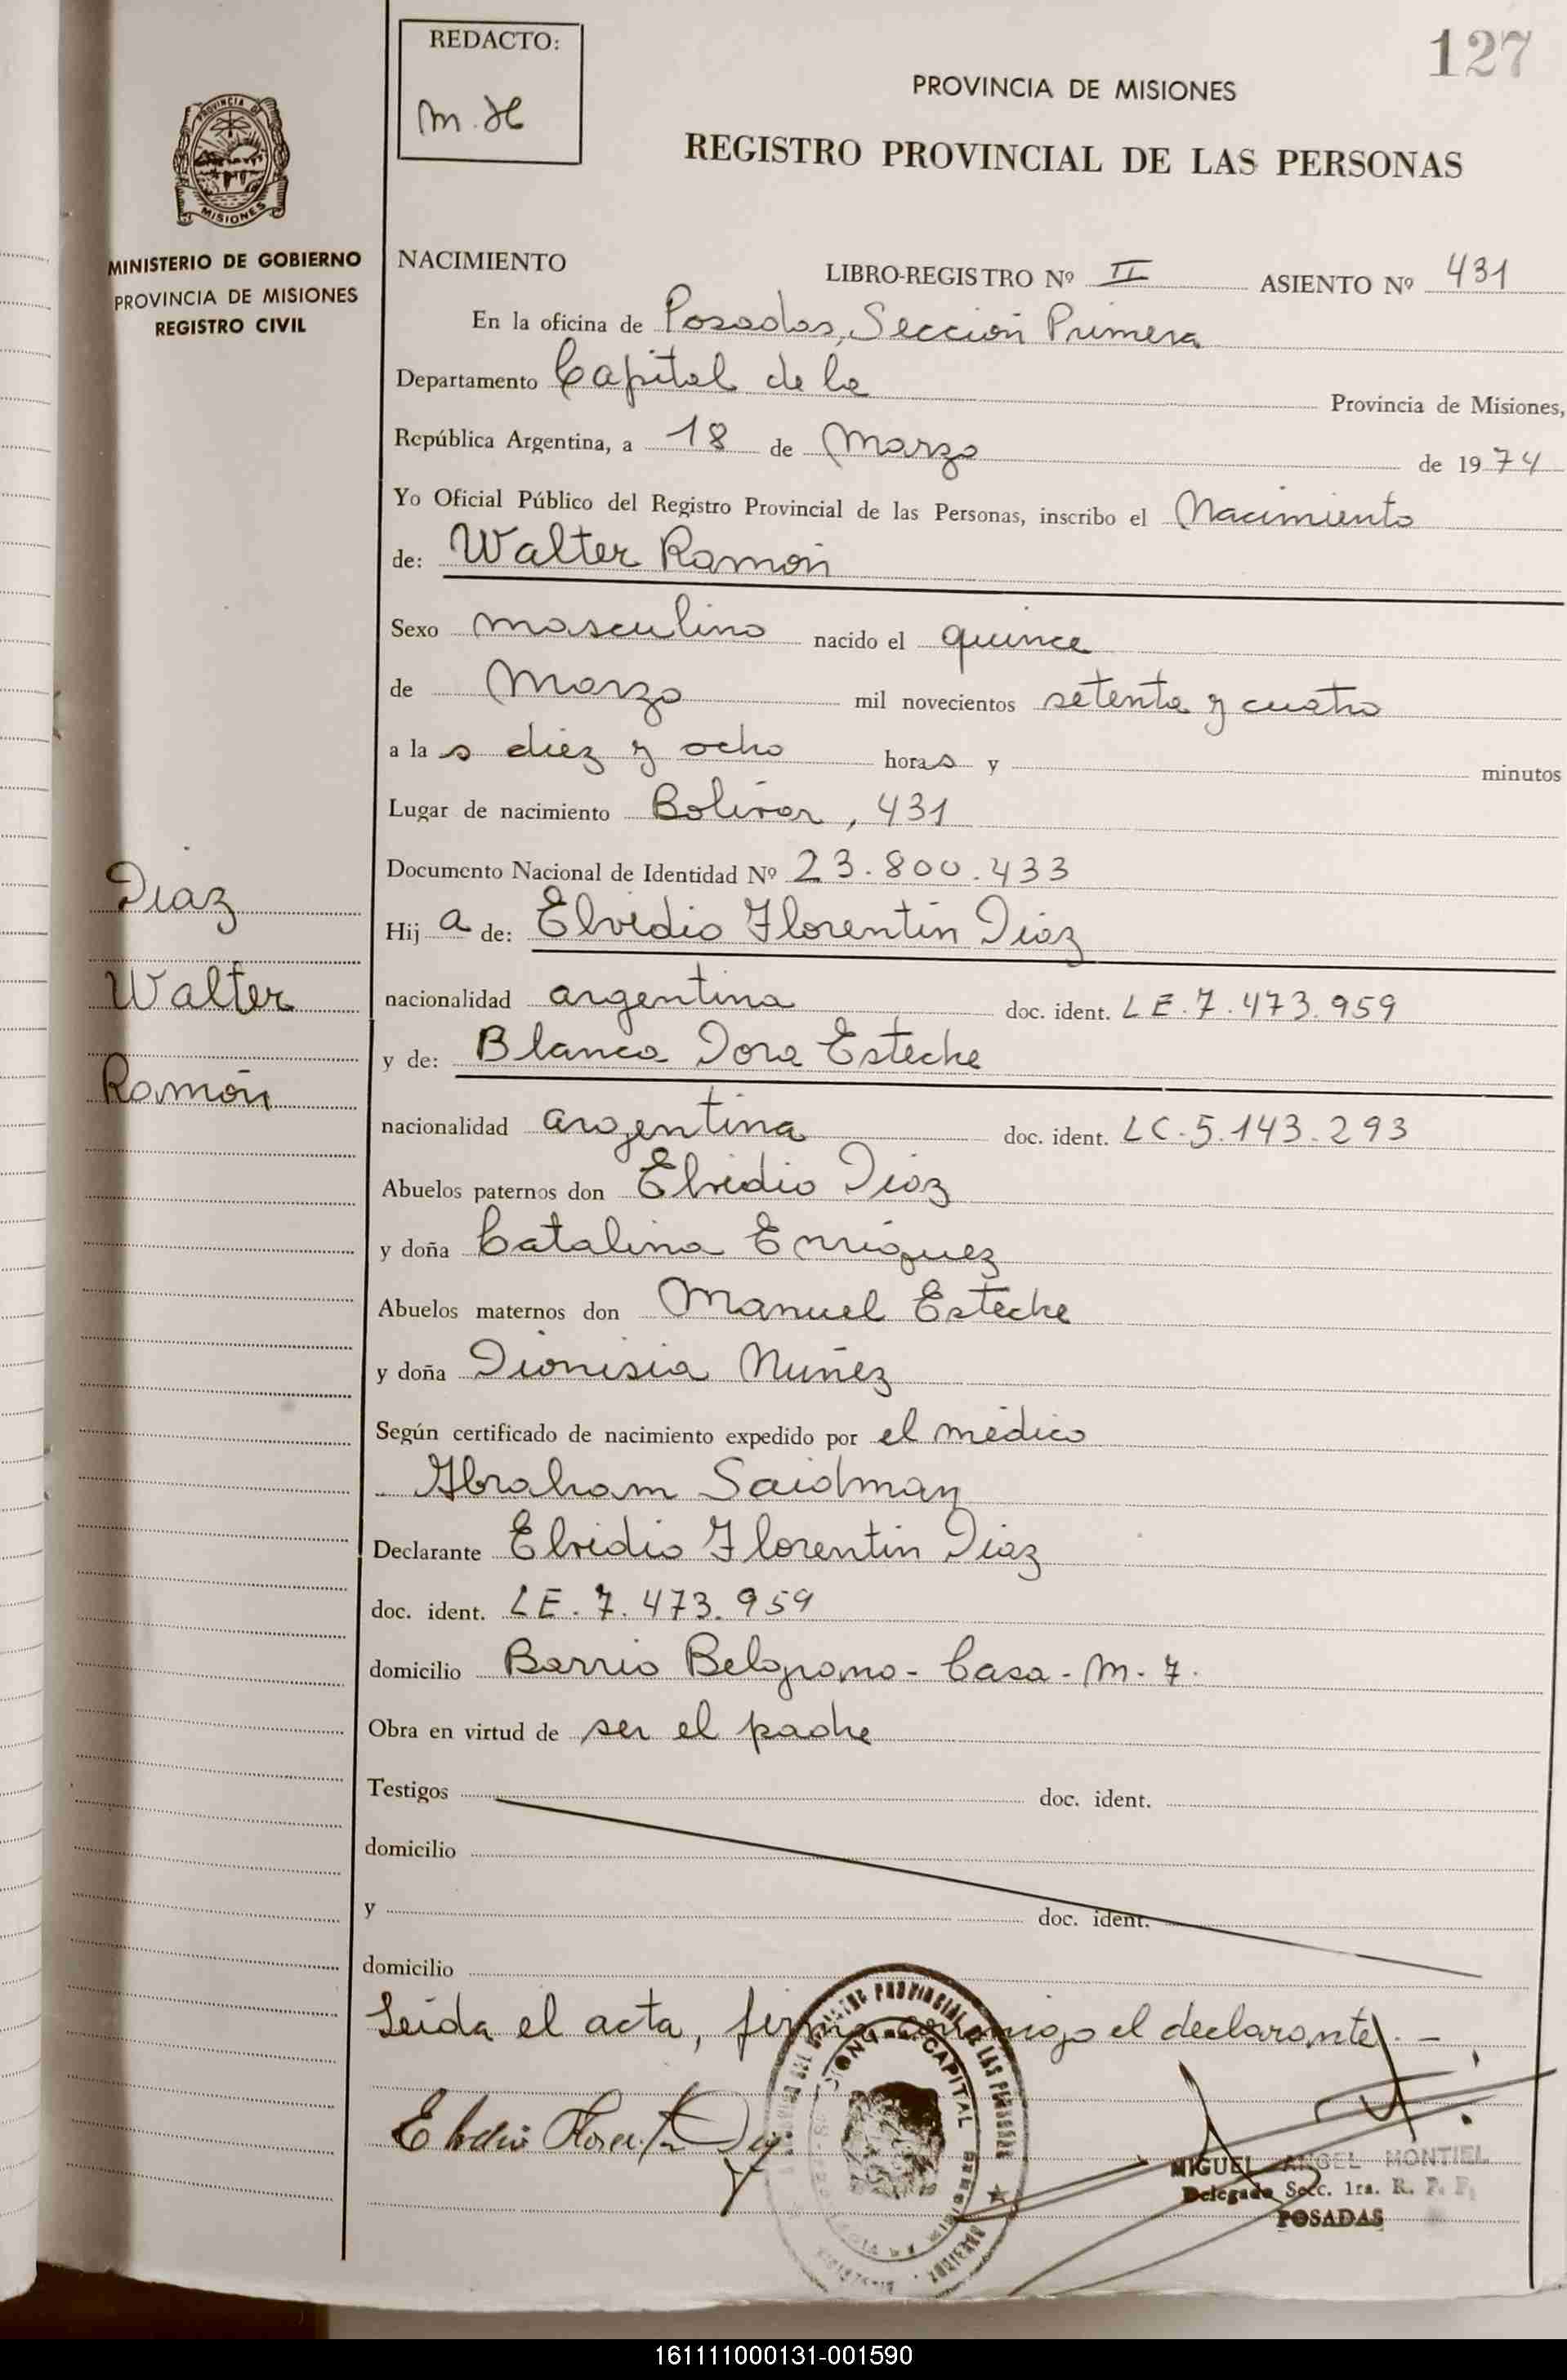 127
REDACTO:
M.H
PROVINCIA DE MISIONES
REGISTRO PROVINCIAL DE LAS PERSONAS
PROVINCIA DE
MISIONES
MINISTERIO DE GOBIERNO
PROVINCIA DE MISIONES
REGISTRO CIVIL
NACIMIENTO
LIBRO-REGISTRO Nº II ASIENTO Nº 431
En la oficina de Posadas, Sección Primera
Departamento Capital de la Provincia de Misiones,
República Argentina, a 18 de Marzo de 1974
Yo Oficial Público del Registro Provincial de las Personas, inscribo el Nacimiento
de: Walter Ramón
Sexo masculino nacido el quince
de Marzo mil novecientos setenta y cuatro
a las diez y ocho horas y minutos
Lugar de nacimiento Bolívar, 431
Documento Nacional de Identidad Nº 23.800.433
Diaz
Walter
Ramón
Hija de: Elvidio Florentin Diaz
nacionalidad argentina doc. ident. LE.7.473.959
y de: Blanca Dora Esteche
nacionalidad argentina doc. ident. LC.5.143.293
Abuelos paternos don Elvidio Diaz
y doña Catalina Enriquez
Abuelos maternos don Manuel Esteche
y doña Dionisia Nuñez
Según certificado de nacimiento expedido por el médico
Abraham Saidman
Declarante Elvidio Florentin Diaz
doc. ident. LE.7.473.959
domicilio Barrio Belgrano - Casa - M - 7.
Obra en virtud de ser el padre
Testigos doc. ident.
domicilio
y doc. ident.
domicilio
Leída el acta, firma conmigo el declarante. -
Elvidio Florentin Diaz
MIGUEL ANGEL MONTIEL
Delegado Secc. 1ra. R. P. P.
POSADAS
161111000131-001590